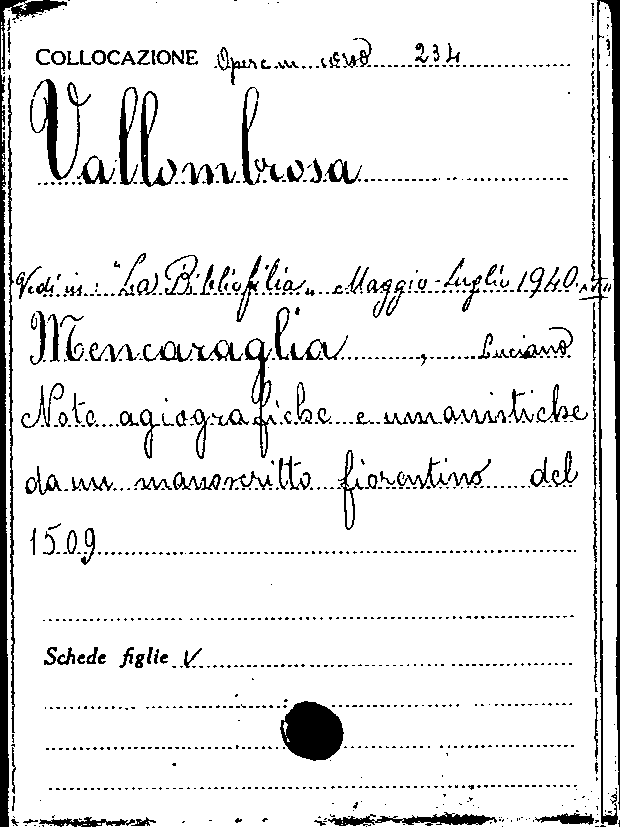 COLLOCAZIONE Opere in corso 234
Vallombrosa
Vedi in: "La Bibliofilia" Maggio-Luglio 1940
Mencaraglia, Luciano
Note agiografiche e umanistiche
da un manoscritto fiorentino del
1509
Schede figlie V